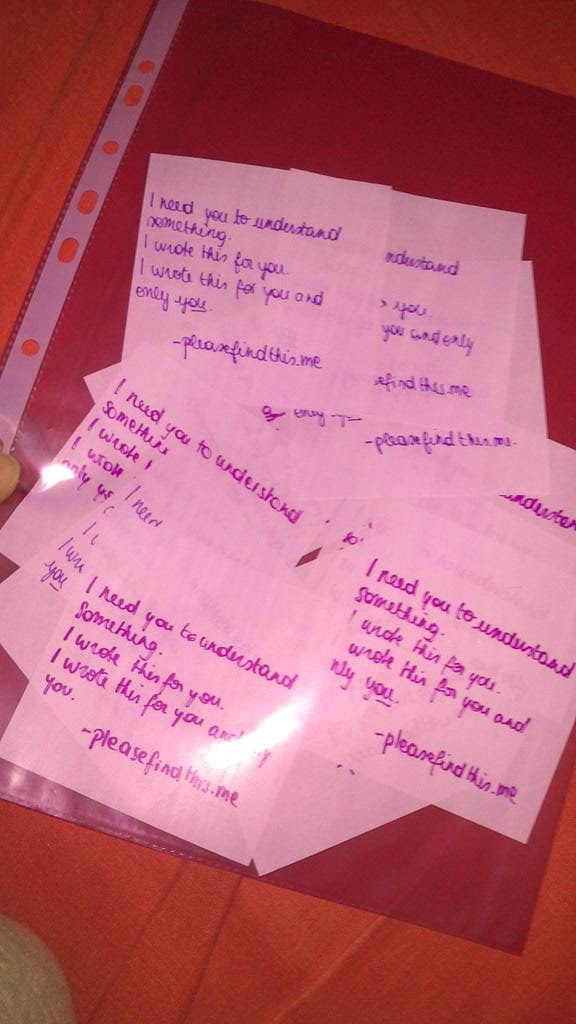 I need you to understand
something.
I wrote this for you.
I wrote this for you and
only you.
-pleasefindthis.me
nderstand
you.
you and only
efindthis.me
only
-pleasefindthis.me.
I need you to understand
something
I wrote
I wrote
only yo
I need
you
understand
so
I need you to understand
something.
I wrote this for you.
I wrote this for you and
you.
-pleasefindthis.me
I need you to understand
something.
I wrote this for you.
wrote this for you and
nly you.
-pleasefindthis.me